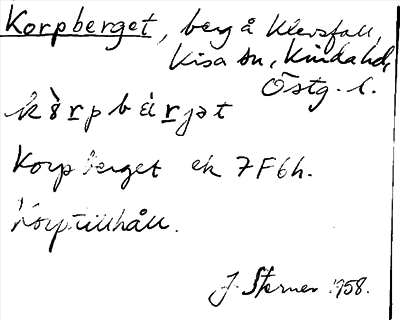 Korpberget, berg å Klevsfall,
Kisa sn, Kinda hd,
Östg. l.
kò̀rpbàrjət
Korpberget ek 7F6h.
Korptillhåll.
J. Sterner 1958.